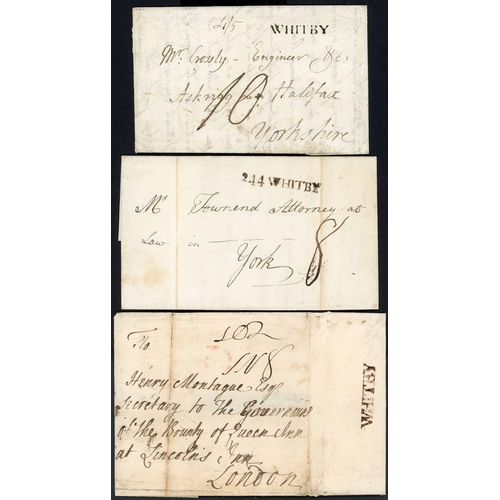 WHITBY
Mr. Crosly - Engineer &c.
10
Halifax
Yorkshire
244 WHITBY
Mr Townend Attorney at
Law in
York
8
To
Henry Montague Esqr
Secretary to The Governours
of the Bounty of Queen Ann
at Lincoln's Inn
London
WHITBY